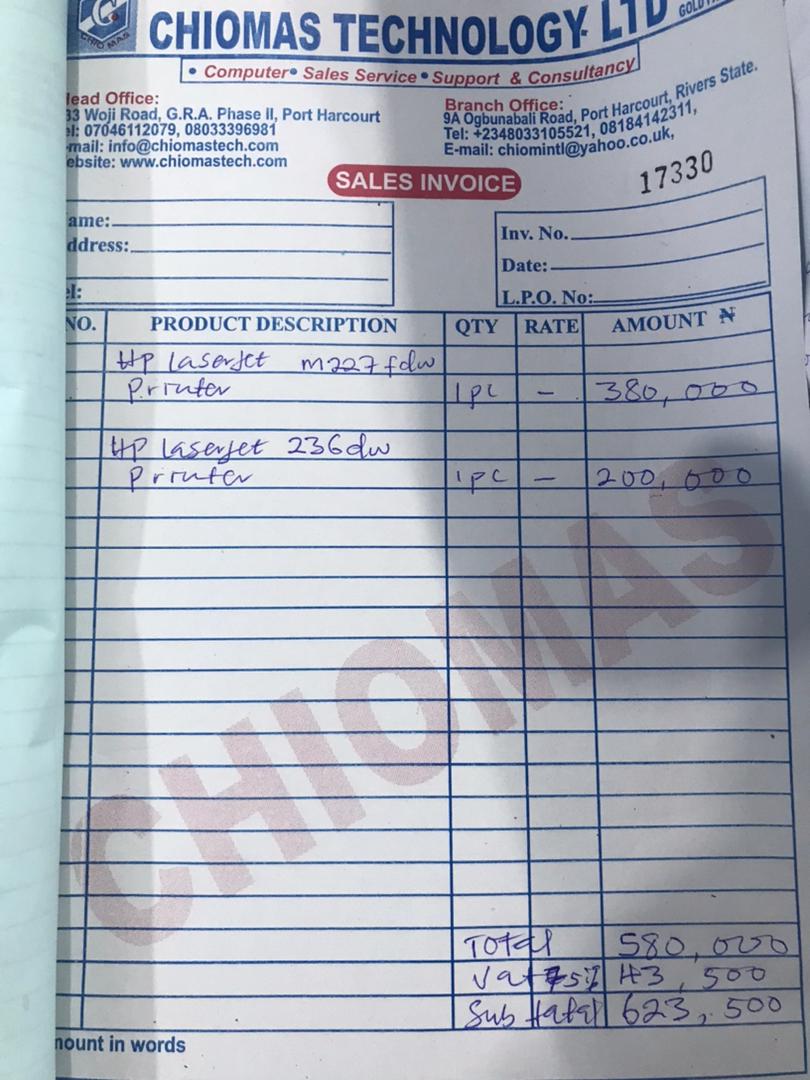 CHIOMAS TECHNOLOGY LTD
CHIOMAS
• Computer • Sales Service • Support & Consultancy
Head Office:
33 Woji Road, G.R.A. Phase II, Port Harcourt
el: 07046112079, 08033396981
-mail: info@chiomastech.com
ebsite: www.chiomastech.com
Branch Office:
9A Ogbunabali Road, Port Harcourt, Rivers State.
Tel: +2348033105521, 08184142311,
E-mail: chiomintl@yahoo.co.uk,
SALES INVOICE
17330
ame:
ddress:
el:
Inv. No.
Date:
L.P.O. No:
NO. PRODUCT DESCRIPTION QTY RATE AMOUNT ₦
HP laserjet m227fdw
Printer 1pc - 380,000
HP laserjet 236dw
Printer 1pc - 200,000
CHIOMAS
Total 580,000
Vat 7.5% 43,500
Sub total 623,500
mount in words